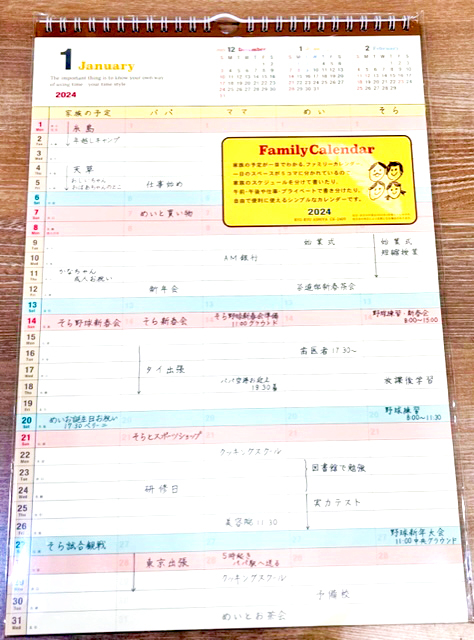 1 January
The important thing is to know your own way
of using time - your time style.
2024
12 December
1
2 February
家族の予定 パパ ママ めい そら
FamilyCalendar
家族の予定が一目でわかる、ファミリーカレンダー。
一日のスペースが5コマに分かれているので
家族のスケジュールを分けて書いたり、
午前・午後や仕事・プライベートで書き分けたり、
自由で便利に使えるシンプルなカレンダーです。
2024
1 Mon 糸島
2 Tue 年越しキャンプ
3 Wed
4 Thu 天草
5 Fri おじいちゃん おばあちゃんのとこ 仕事始め
6 Sat
7 Sun めいと買い物
8 Mon
9 Tue 始業式 始業式
短縮授業
10 Wed AM銀行
11 Thu かなちゃん
友人お祝い
12 Fri 新年会 茶道部新春茶会
13 Sat
14 Sun そら野球新春会 そら新春会 そら野球新春会準備
11:00グラウンド 野球練習・新春会
8:00〜15:00
15 Mon
16 Tue 歯医者17:30〜
17 Wed タイ出張
18 Thu パパ空港お迎え
18:30着 放課後学習
19 Fri
20 Sat めいお誕生日お祝い
17:30 野球練習
8:00〜11:30
21 Sun そらとスポーツショップ
22 Mon クッキングスクール
23 Tue 図書館で勉強
24 Wed 研修日
25 Thu 実力テスト
26 Fri 美容院11:30
27 Sat そら試合観戦 野球新年大会
11:00中央グラウンド
28 Sun 東京出張 5時起き
パパ駅へ送る
29 Mon クッキングスクール
30 Tue 予備校
31 Wed めいとお茶会